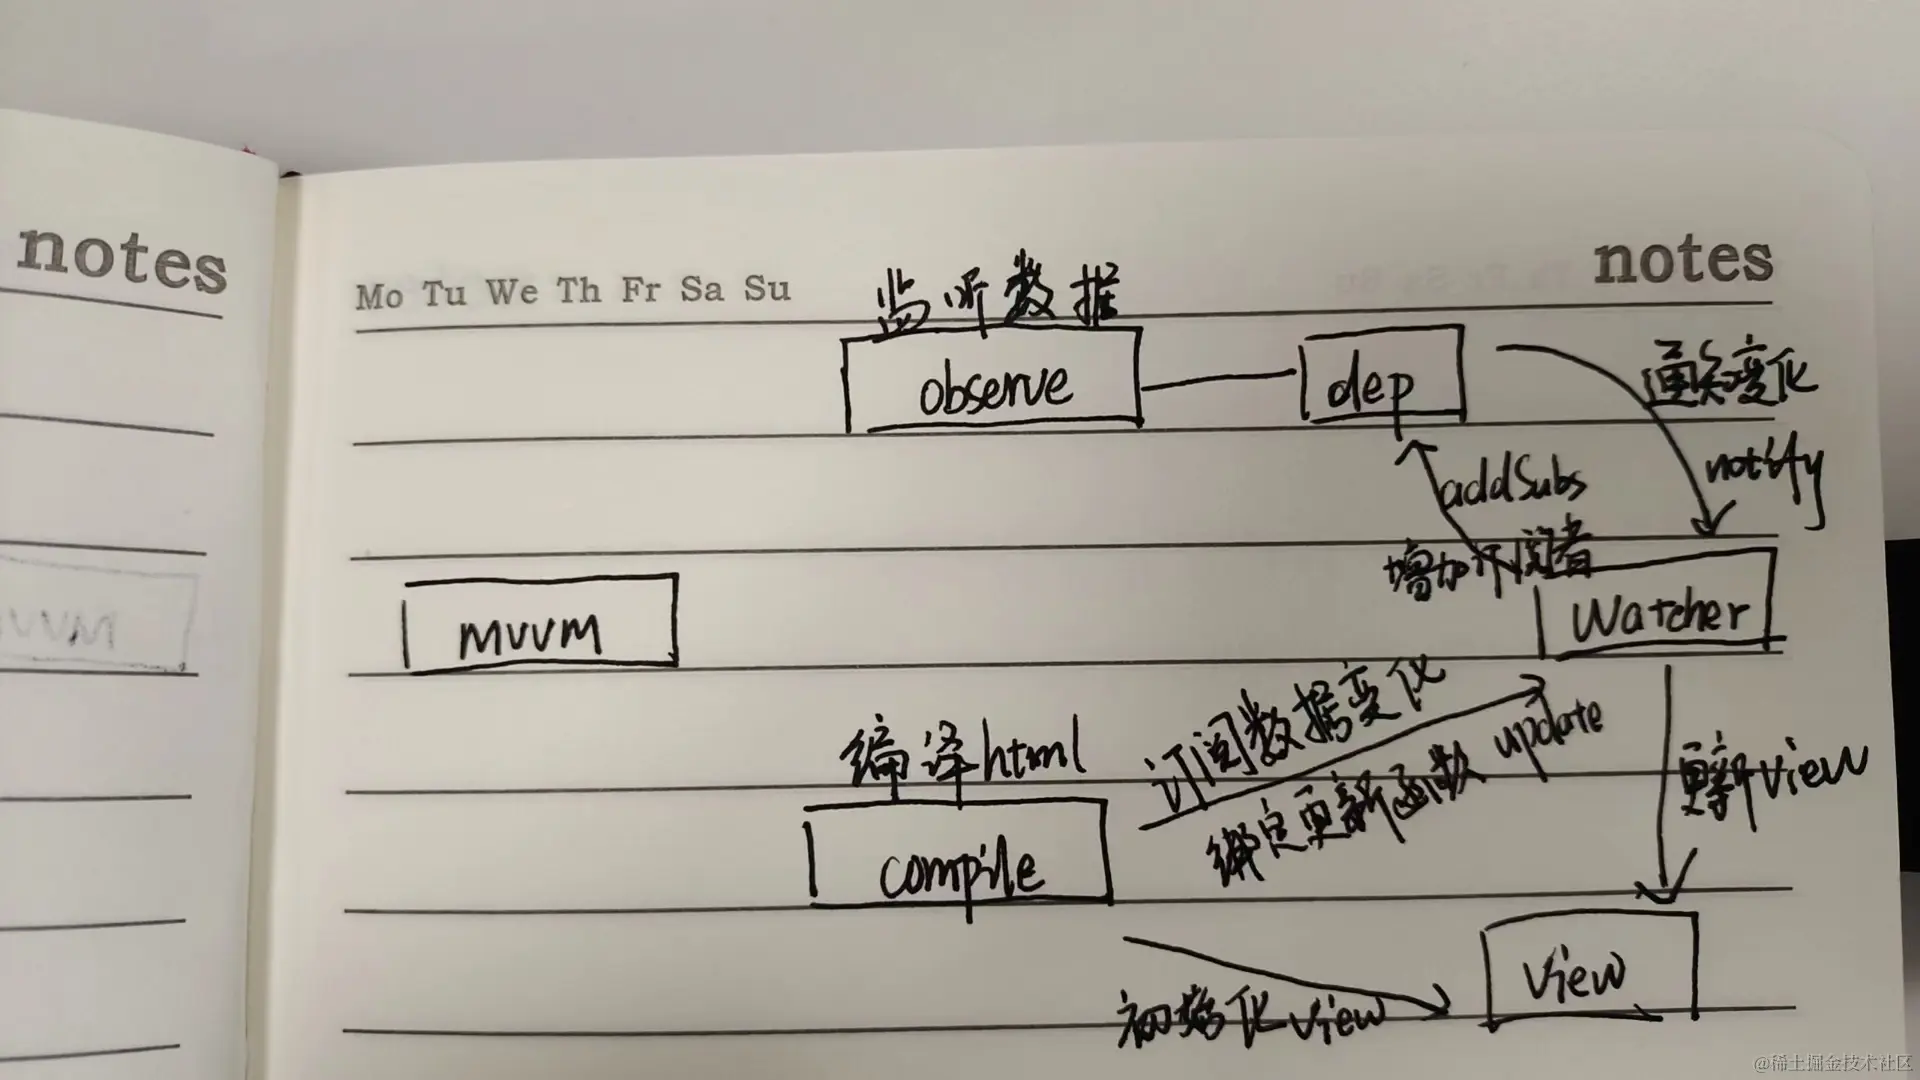 notes
notes
Mo Tu We Th Fr Sa Su
监听数据
observe
dep
通知变化
notify
addSubs
增加订阅者
Watcher
mvvm
订阅数据变化
绑定更新函数 update
更新view
编译html
compile
初始化view
view
@稀土掘金技术社区